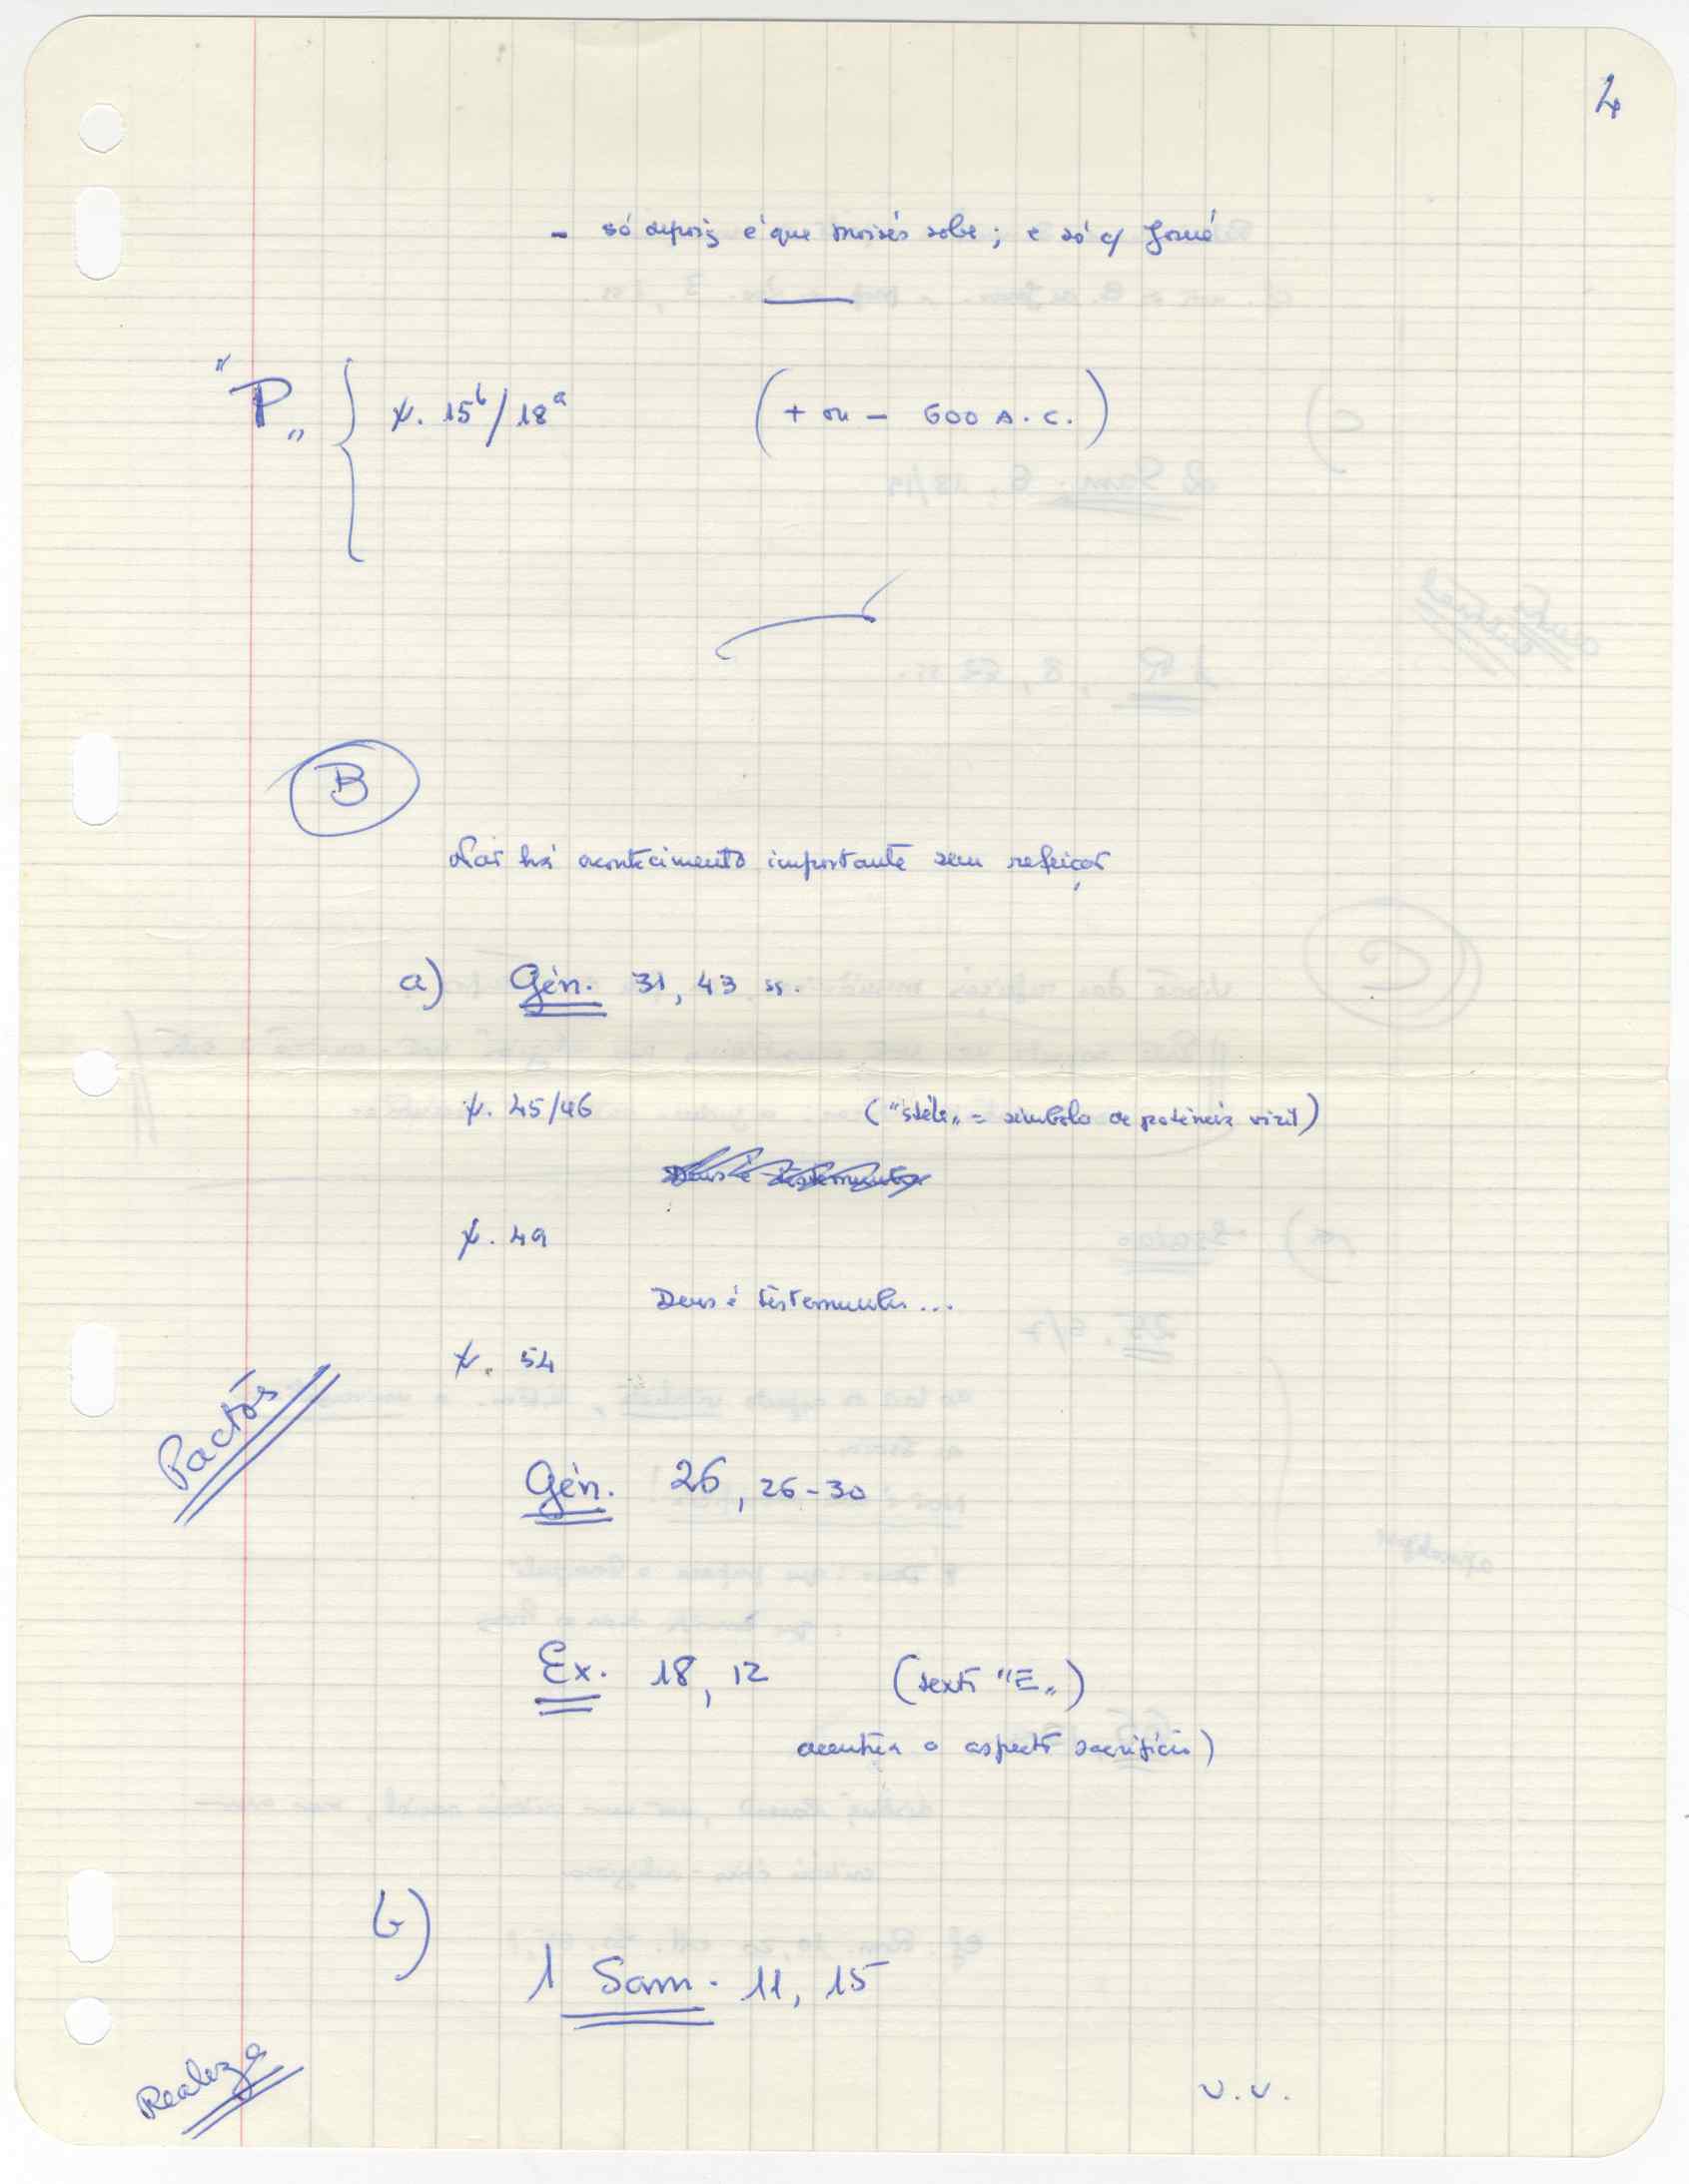 4
- só depois é que Moisés sobe; e só c/ Josué
"P„ { v. 15b/18a (+ ou - 600 A.C.)
B
Não há acontecimento importante sem refeição
a) Gén. 31, 43 ss.
v. 45/46 ("stèle„ = símbolo de potência viril)
Deus é testemunha
v. 49
Deus é testemunha...
v. 54
Pactos
Gén. 26, 26-30
Ex. 18, 12 (texto "E„)
acentua o aspecto sacrifício)
b)
1 Sam. 11, 15
Realeza
v.v.